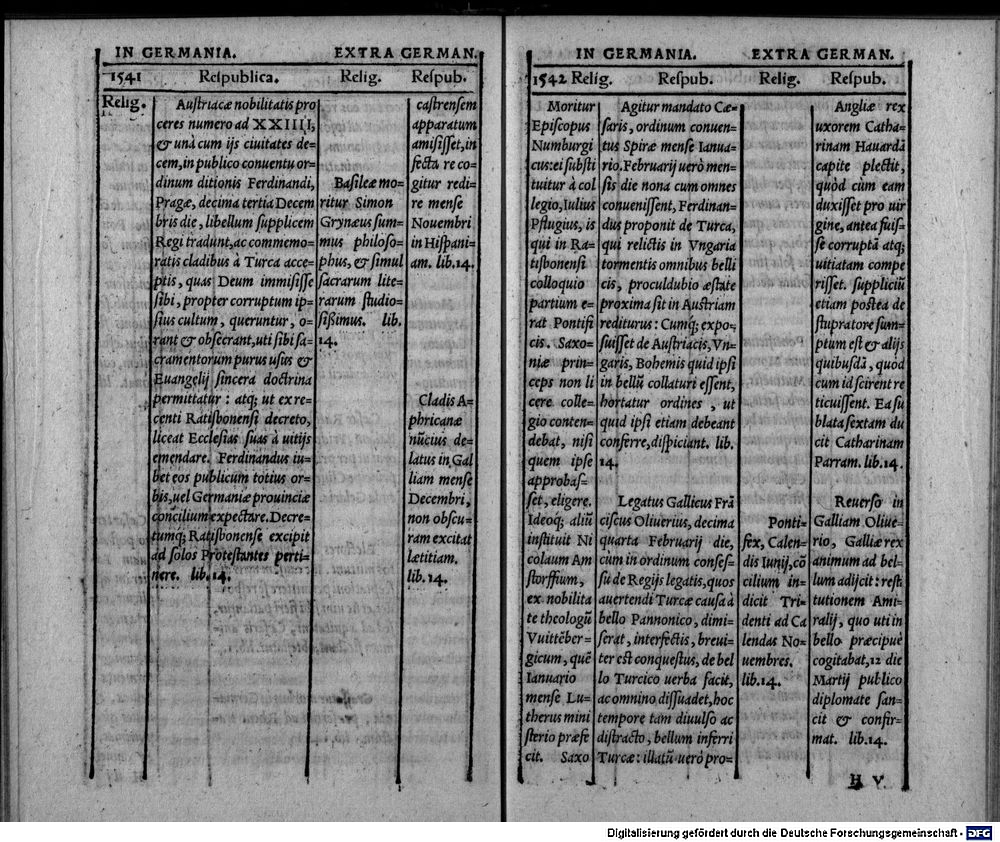 IN GERMANIA. EXTRA GERMAN.
1541 Respublica. Relig. Respub.
Relig.
Austriacæ nobilitatis pro
ceres numero ad XXIIII,
& unà cum ijs ciuitates de-
cem, in publico conuentu or-
dinum ditionis Ferdinandi,
Pragæ, decima tertia Decem
bris die, libellum supplicem
Regi tradunt, ac commemo-
ratis cladibus à Turca acce-
ptis, quas Deum immisisse
sibi, propter corruptum ip-
sius cultum, queruntur, o-
rant & obsecrant, uti sibi sa-
cramentorum purus usus &
Euangelij sincera doctrina
permittatur : atq; ut ex re-
centi Ratisbonensi decreto,
liceat Ecclesias suas à uitijs
emendare. Ferdinandus iu-
bet eos publicum totius or-
bis, uel Germaniæ prouinciæ
concilium expectare. Decre-
tumq; Ratisbonense excipit
ad solos Protestantes perti-
nere. lib. 14.
Basileæ mo-
ritur Simon
Grynæus sum-
mus philoso-
phus, & simul
sacrarum lite-
rarum studio-
sißimus. lib.
14.
castrensem
apparatum
amisisset, in
fecta re co-
gitur redi-
re mense
Nouembri
in Hispani-
am. lib. 14.
Cladis A-
phricanæ
nũcius de-
latus in Gal
liam mense
Decembri,
non obscu-
ram excitat
lætitiam.
lib. 14.
IN GERMANIA. EXTRA GERMAN.
1542 Relig. Respub. Relig. Respub.
Moritur
Episcopus
Numburgi
cus: ei substi
tuitur à col
legio, Iulius
Pflugius, is
qui in Ra-
tisbonensi
colloquio
partium e-
rat Pontifi
cis. Saxo-
niæ prin-
ceps non li
cere colle-
gio conten-
debat, nisi
quem ipse
approbas-
set, eligere.
Ideoq; aliũ
instituit Ni
colaum Am
storffium,
ex nobilita
te theologũ
Vuittẽber-
gicum, quẽ
Ianuario
mense Lu-
therus mini
sterio præfe
cit. Saxo
Agitur mandato Cæ-
saris, ordinum conuen-
tus Spiræ mense Ianua-
rio. Februarij uerò men-
sis die nona cum omnes
conuenissent, Ferdinan-
dus proponit de Turca,
qui relictis in Vngaria
tormentis omnibus belli
cis, proculdubio æstate
proxima sit in Austriam
rediturus : Cumq; expo-
suisset de Austriacis, Vn-
garis, Bohemis quid ipsi
in bellũ collaturi essent,
hortatur ordines, ut
quid ipsi etiam debeant
conferre, dispiciant. lib.
14.
Legatus Gallicus Frã
ciscus Oliuerius, decima
quarta Februarij die,
cum in ordinum conses-
su de Regijs legatis, quos
auertendi Turcæ causa à
bello Pannonico, dimi-
serat, interfectis, breui-
ter est conquestus, de bel
lo Turcico uerba facit,
ac omnino dissuadet, hoc
tempore tam diuulso ac
distracto, bellum inferri
Turcæ: illatũ uerò pro-
Ponti-
fex, Calen-
dis Iunij, cõ
cilium in-
dicit Tri-
denti ad Ca
lendas No-
uembres.
lib. 14.
Angliæ rex
uxorem Catha-
rinam Hauardã
capite plectit,
quòd cùm eam
duxisset pro uir
gine, antea fuis-
se corruptã atq;
uitiatam compe
risset. suppliciũ
etiam postea de
stupratore sum-
ptum est & alijs
quibusdã, quòd
cum id scirent re
ticuissent. Ea su
blata sextam du
cit Catharinam
Parram. lib. 14.
Reuerso in
Galliam Oliue-
rio, Galliæ rex
animum ad bel-
lum adijcit: resti
tutionem Ami-
ralij, quo uti in
bello præcipuè
cogitabat, 12 die
Martij publico
diplomate san-
cit & confir-
mat. lib. 14.
H V
Digitalisierung gefördert durch die Deutsche Forschungsgemeinschaft - DFG